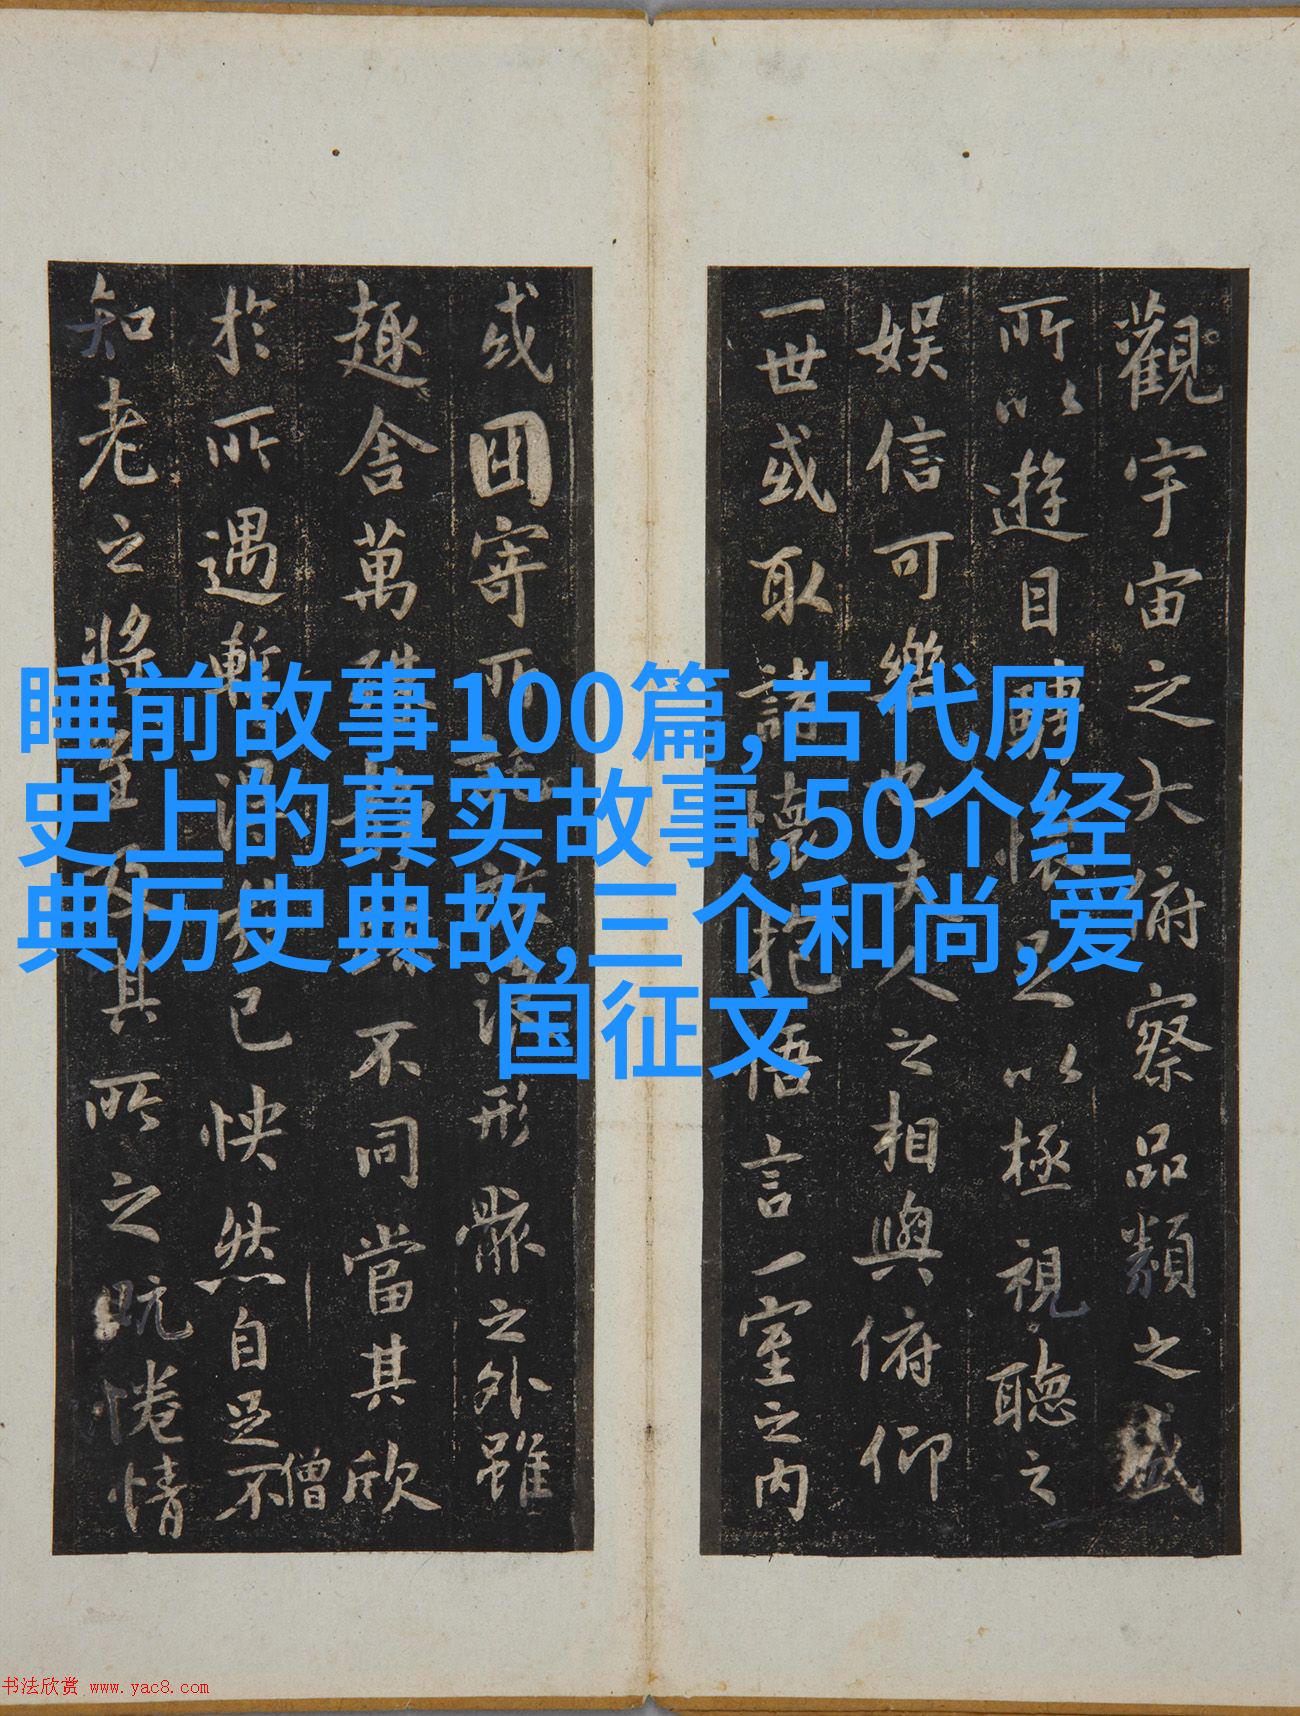 觀宇宙之大府察品類之盛
所以遊目騁懷足以極視聽之
娱信可樂也夫人之相與俯仰
一世或取諸懷抱悟言一室之内
或因寄所託放浪形骸之外雖
趣舎萬殊静躁不同當其欣
於所遇暫得於己怏然自足不
僧
知老之將至及其所之既惓情
睡前故事100篇,古代历
史上的真实故事,50个经
典历史典故,三个和尚,爱
国征文
书法欣赏 www.yac8.com